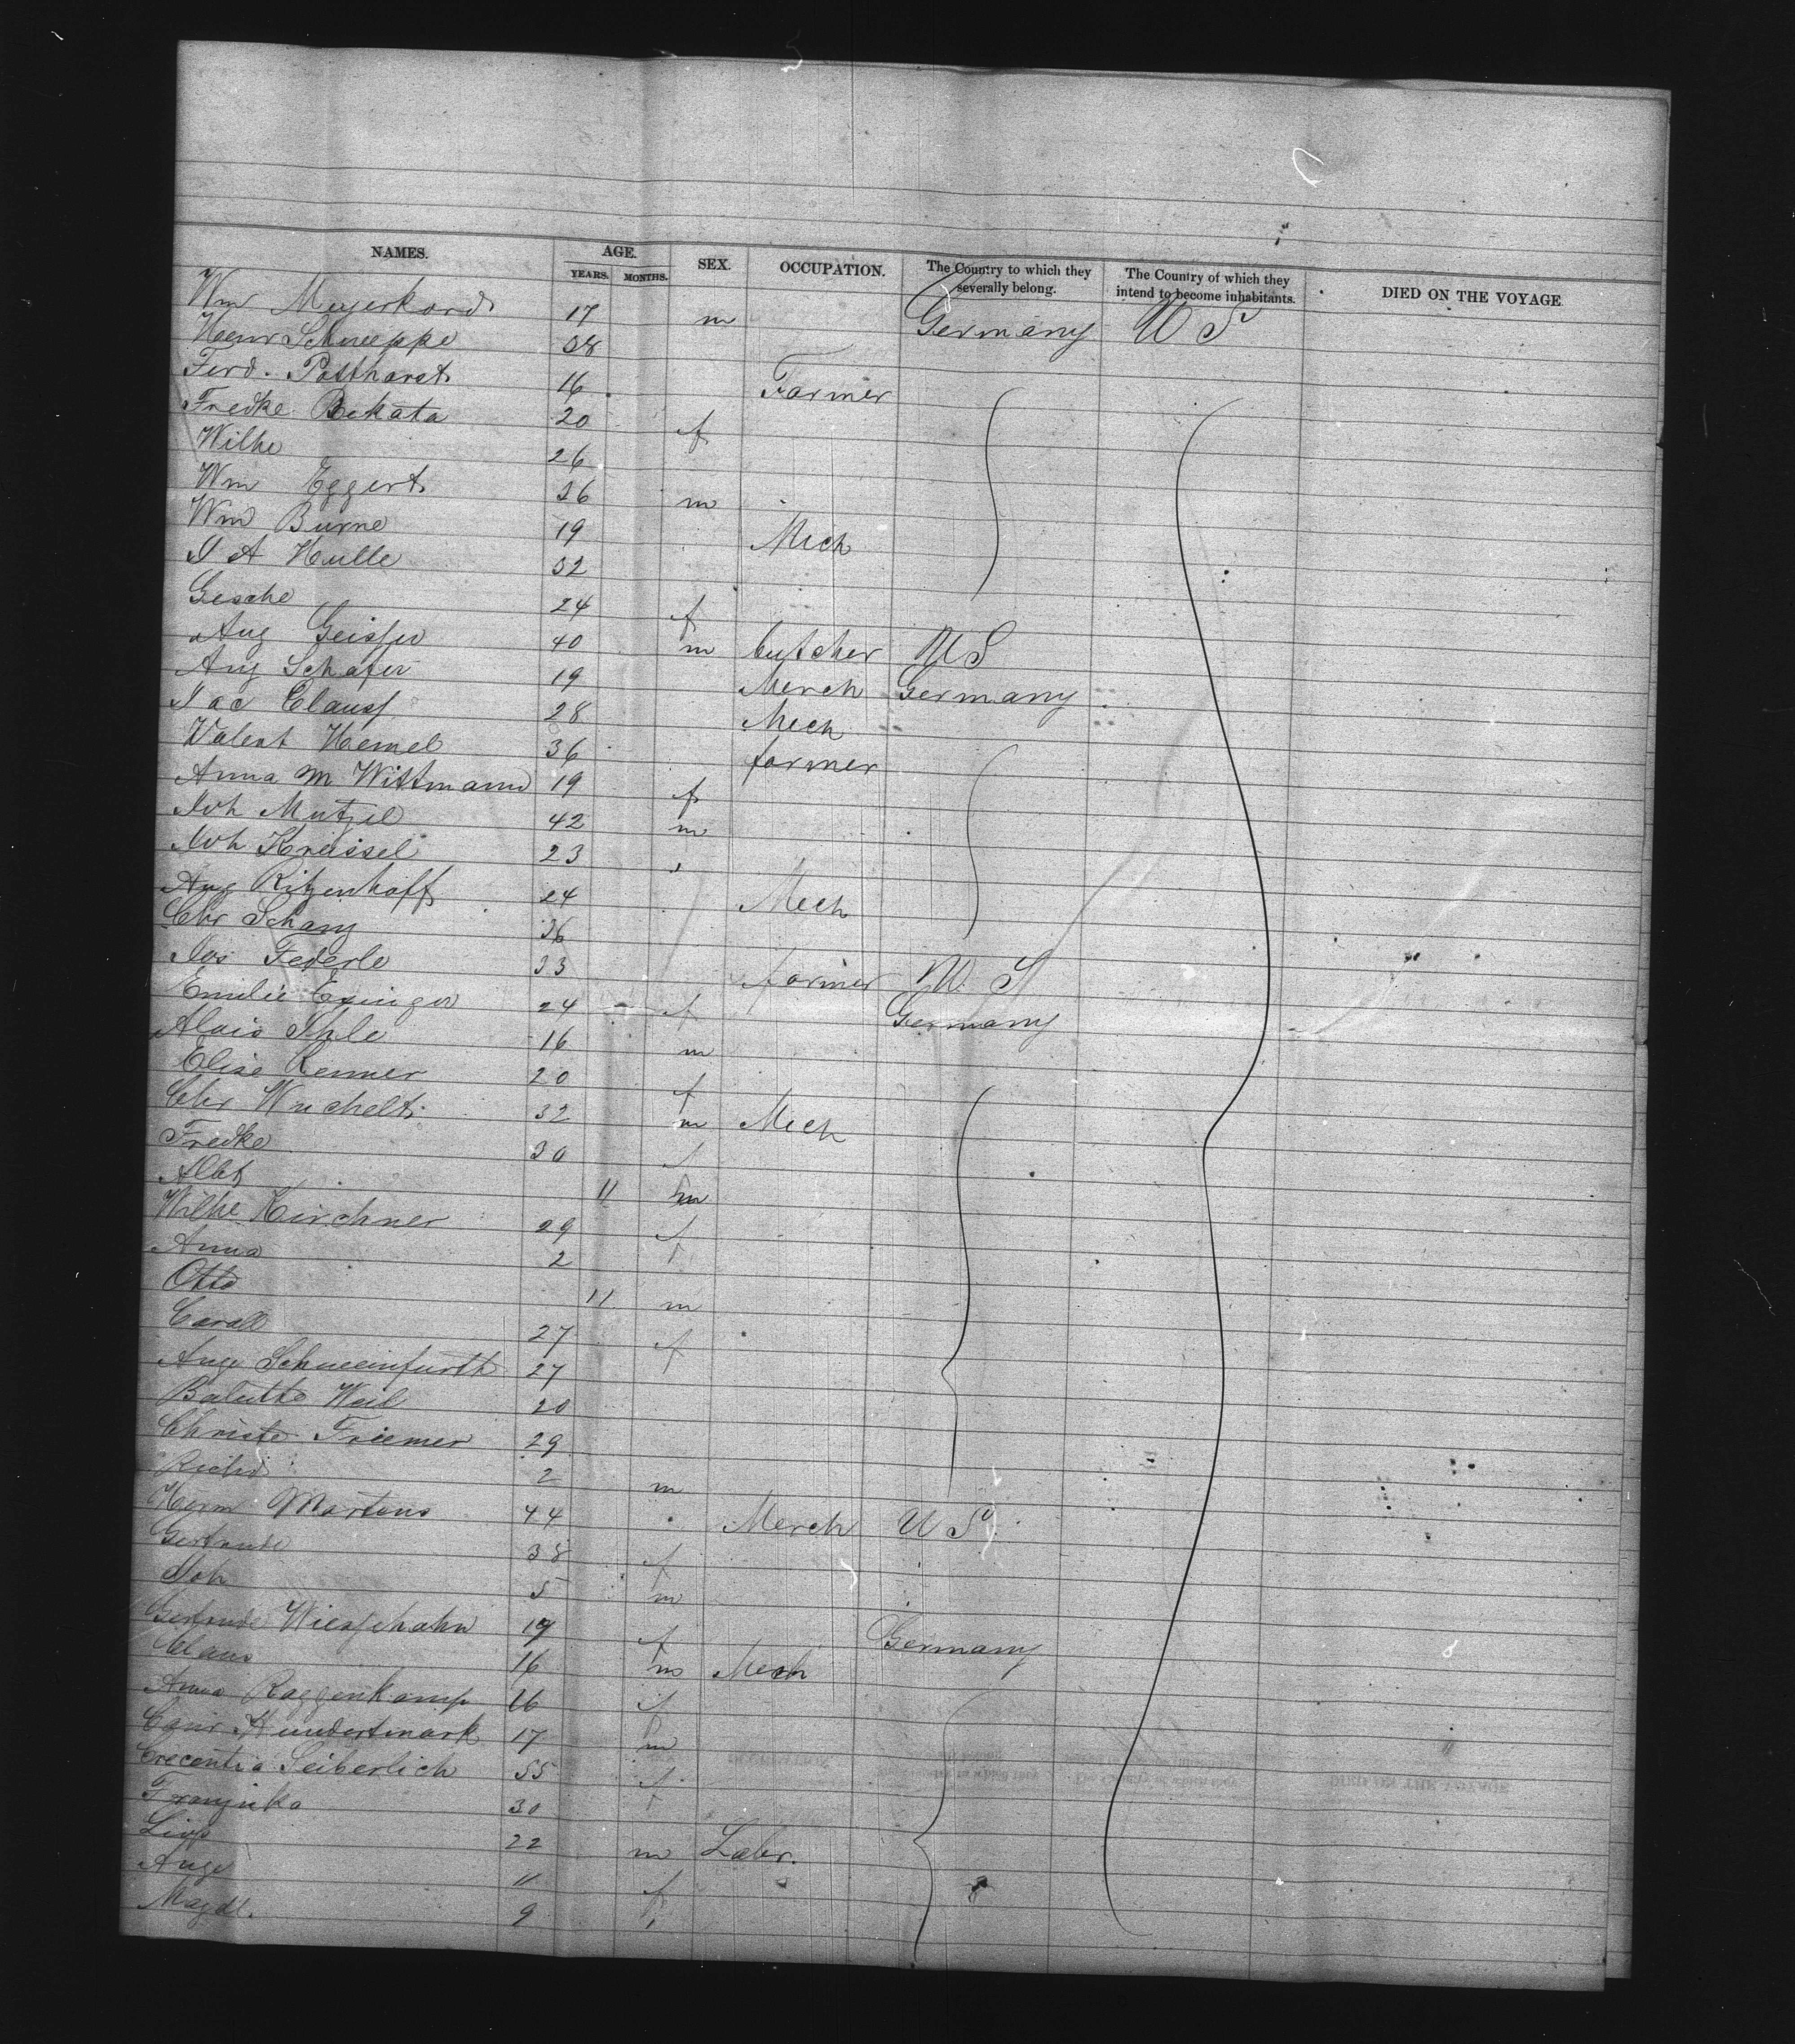 NAMES. AGE. SEX. OCCUPATION. The Country to which they severally belong. The Country of which they intend to become inhabitants. DIED ON THE VOYAGE
YEARS. MONTHS.
Wm Meyerkord 17 m Germany U S
Henr Schneppe 38
Ferd. Posthorst 16 Farmer
Fredke Bekata 20 f
Wilhe 26
Wm Eggert 26 m
Wm Burne 19 Mech
J A Hulle 32
Gesche 24 f
Aug 40 m butcher U S
Aug Schafer 19 Merch Germany
Jac Clauss 28 Mech
Valent Hemel 36 farmer
Anna M Wittmann 19 f
Joh Mutzel 42 m
Joh Kreissel 23
Aug Ritzenhoff 24 Mech
Chr Schary 36
Jos Federle 33 farmer U. S
Emilie 24 f Germany
Alois Ihle 16 m
Elise Renner 20 f
Chr Wuchelt 32 m Mech
Fredke 30 f
Albt 11 m
Wilhe Kirchner 29 f
Anna 2 f
Otto 11 m
Caroll 27 f
Auge Schweinfurth 27
Babette Weil 20
Christe Friemer 29
Richd 2 m
Herm Martens 44 Merch U S
Gertrude 38 f
Joh 5 m
Gertrude Wiesschahn 19 f Germany
Claus 16 m Mech
Anna Roggenkamp 16 f
Casir Hundertmark 17 m
Crecentia Seiberlich 55 f
Franziska 30 f
22 m Labr.
Auge 11 f
Magdl. 9